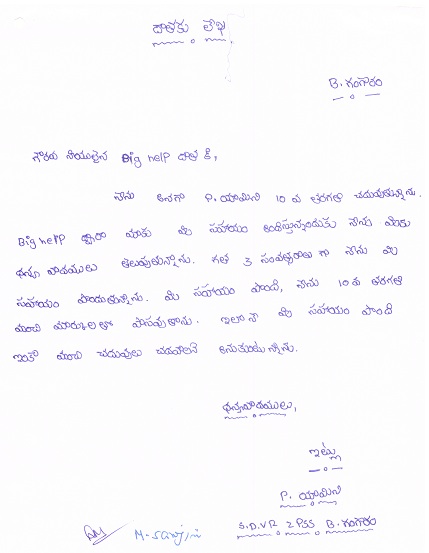 దాతకు లేఖ
B. గంగారం
గౌరవ నీయులైన Big help దాత కి,
నేను అనగా P. యామిని 10 వ తరగతి చదువుతున్నాను.
Big help ద్వారా మాకు మీ సహాయం అందిస్తున్నందుకు నేను మీకు
ధన్య వాదములు తెలుపుతున్నాను. గత 3 సంవత్సరాలు గా నేను మీ
సహాయం పొందుతున్నాను. మీ సహాయం పొంది, నేను 10 వ తరగతి
మంచి మార్కులతో పాసవుతాను. ఇలానే మీ సహాయం పొంది
ఇంకా మంచి చదువులు చదవాలని అనుకుంటున్నాను.
ధన్యవాదములు,
ఇట్లు
P. యామిని
S.D.VR ZPSS B. గంగారం